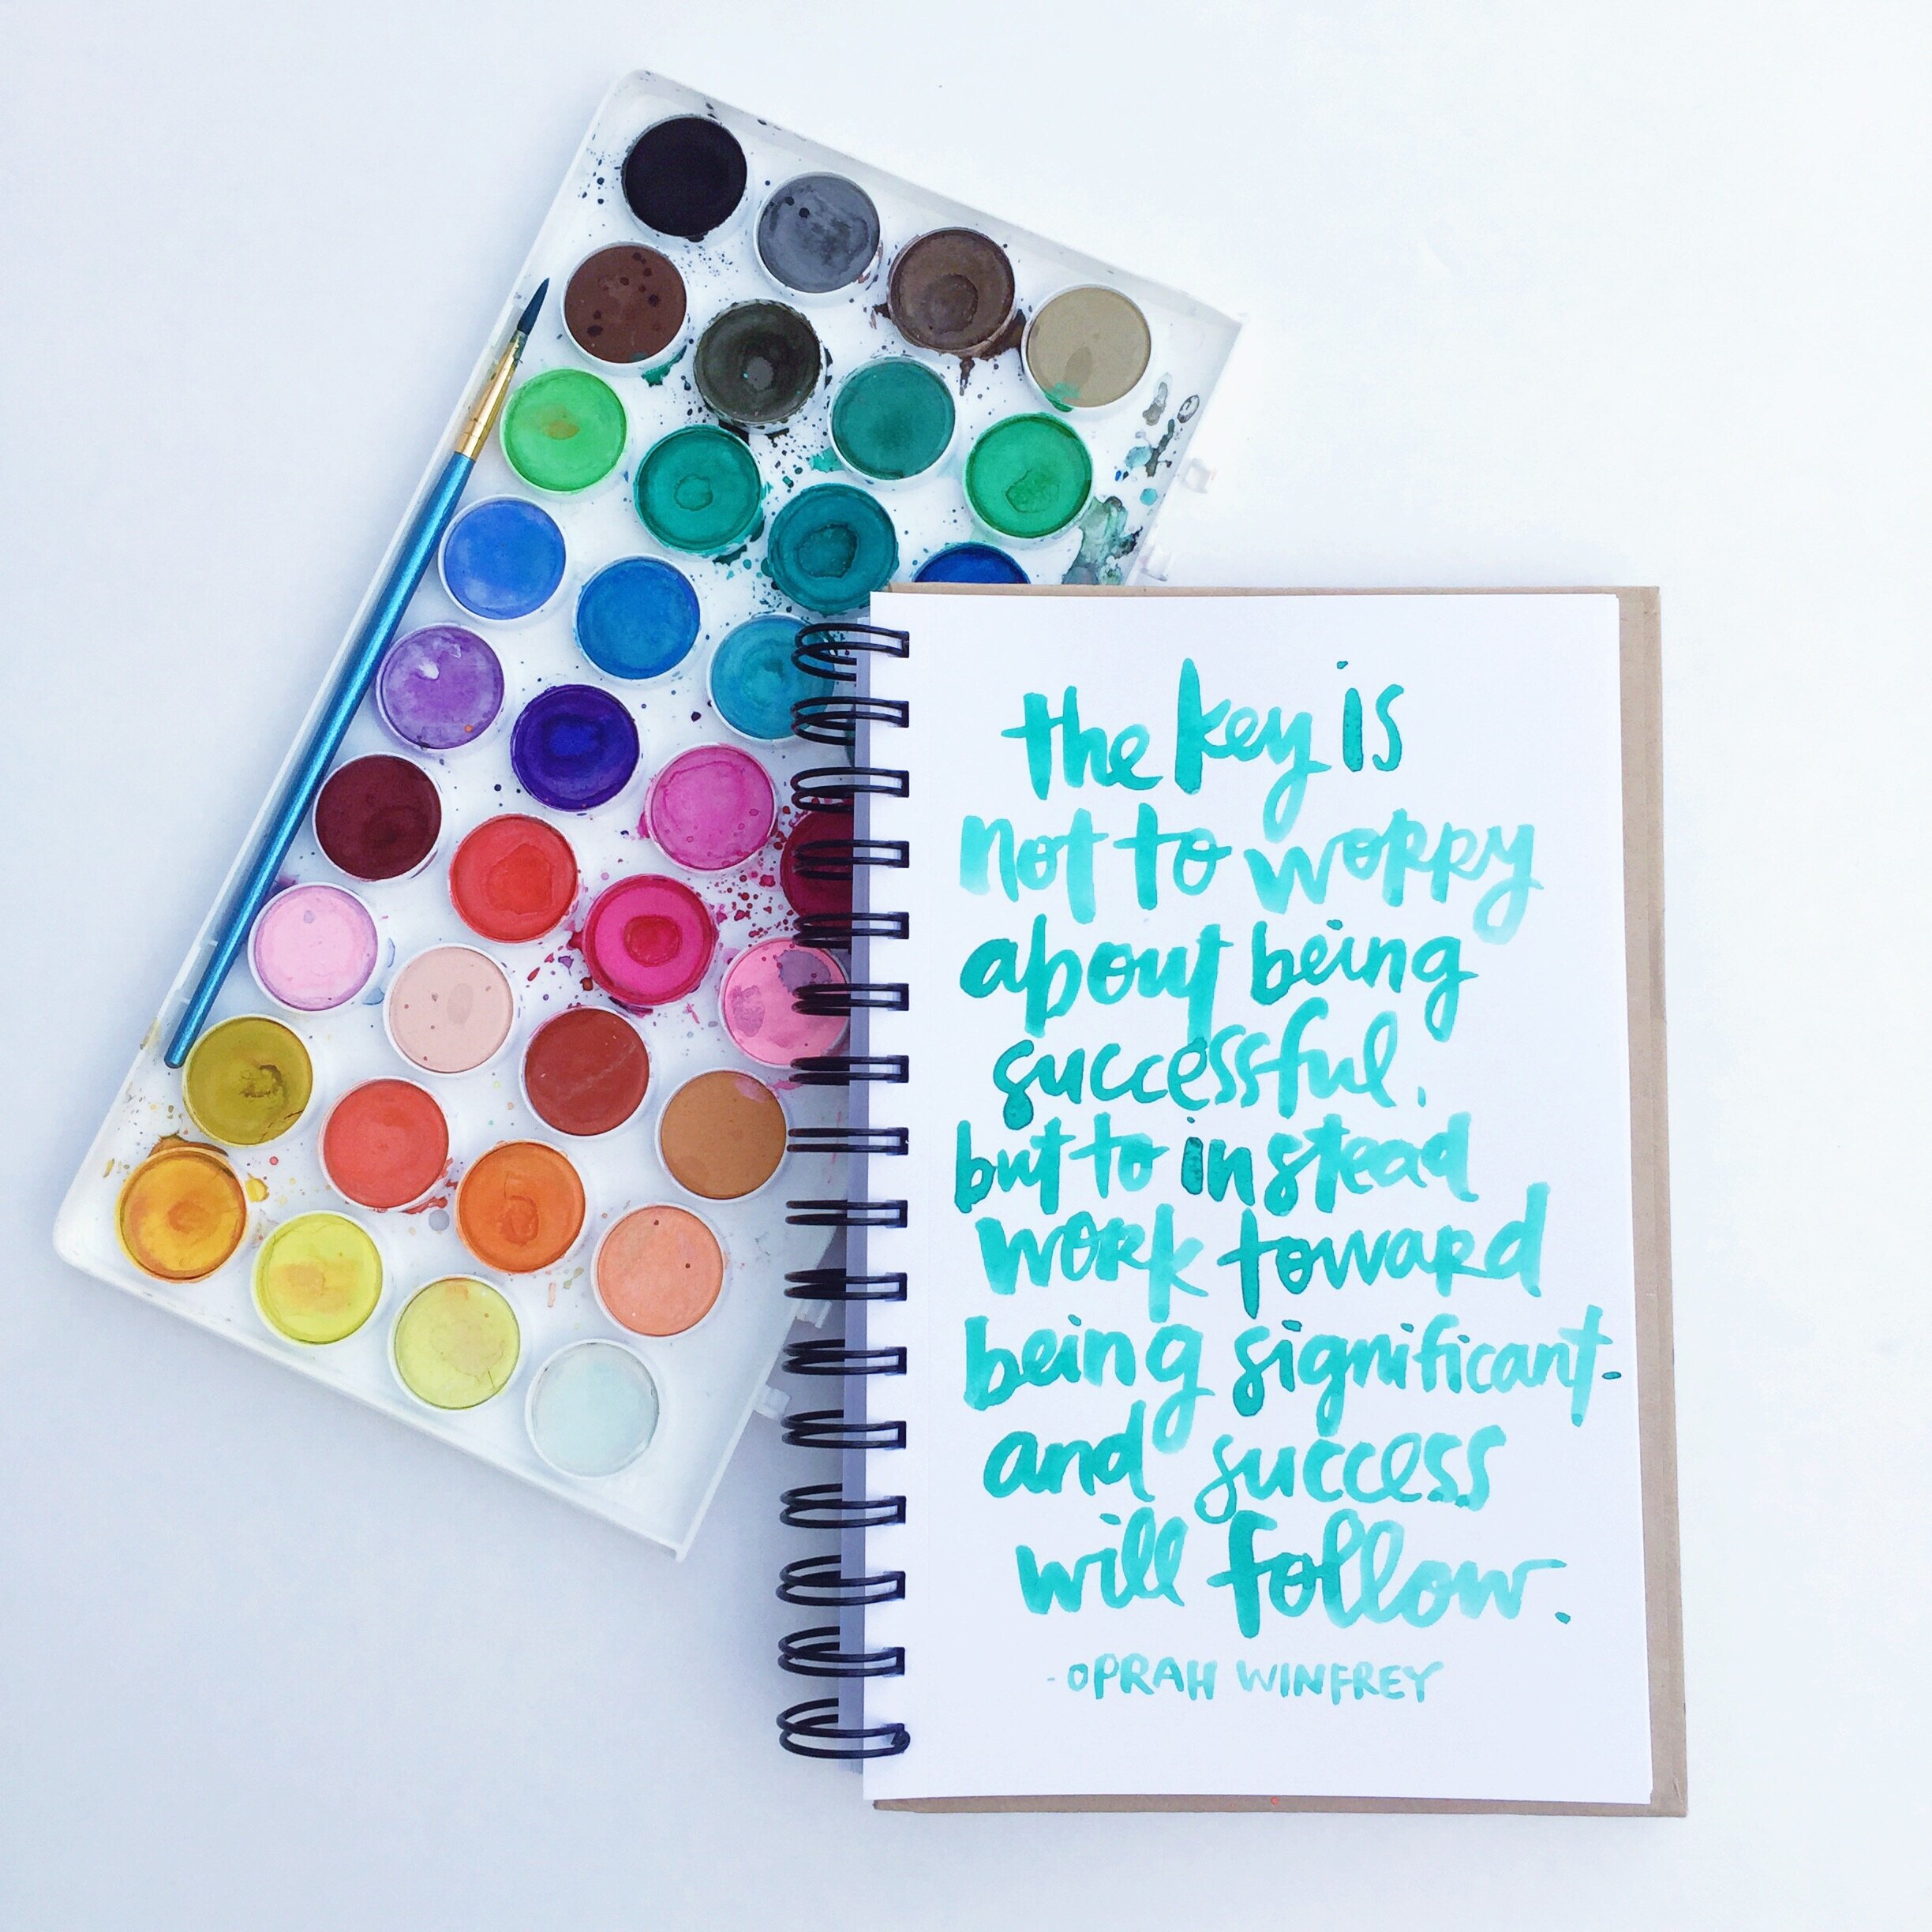 the key is
not to worry
about being
successful,
but to instead
work toward
being significant-
and success
will follow.
-OPRAH WINFREY